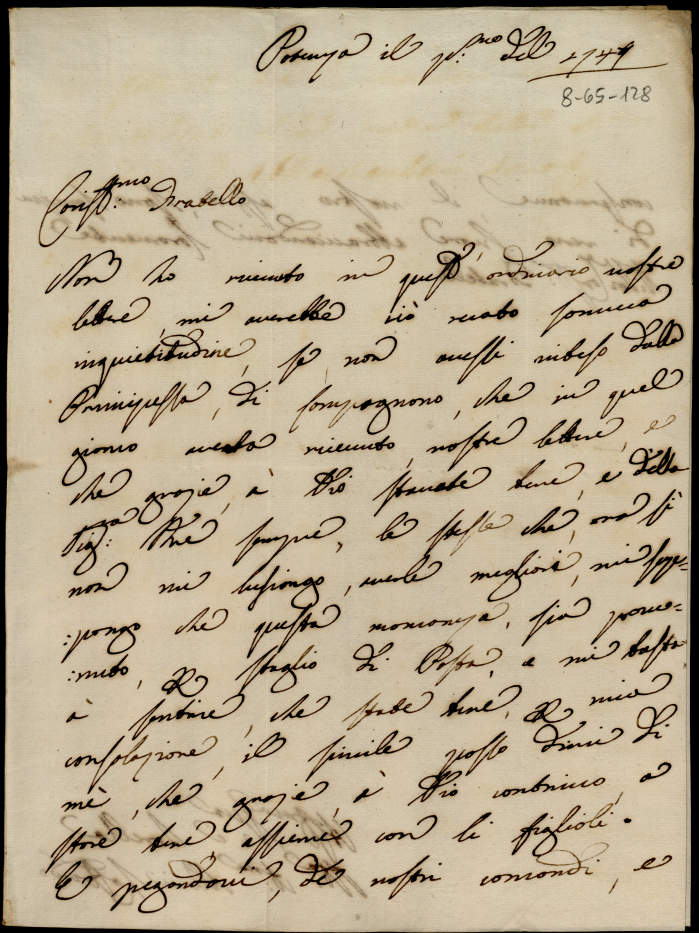 Potenza il p:mo del 1749
8-65-128
Cariss:mo Fratello
Non ho riceuuto in quest' ordinario uostre
lettere, mi auerebbe ciò recato somma
inquietitudine, se non auessi inteso dalla
Principessa, di Compagnono, che in quel
giorno aueua riceuuto, uostre lettere, e
che grazie, à Dio stauate bene, e della
Sig:ra Mrē sempre, le stesse che, ora si
non mi lusingo, auerle megliori, mi sup=
:pongo che questa mancanza, sia proue=
:nuto, per sbaglio di Posta, e mi basta
à sentire, che state bene, per mia
consolazione, il simile posso dirui di
mè, che grazie, à Dio continuo, a
stare bene, assieme con li figlioli.
E pregandoui, de uostri comandi, e